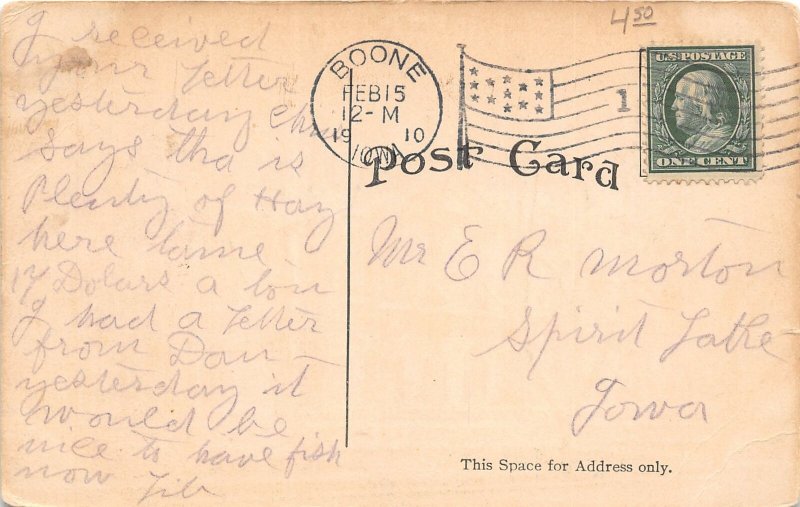 4 50
BOONE
FEB 15
12-M
19 10
IOWA
1
U.S. POSTAGE
ONE CENT
Post Card
I received
your letter
yesterday
says tha is
Plenty of Hay
here tame
17 Dolars a ton
I had a letter
from Dan
yesterday it
would be
nice to have fish
now
Mr E R Morton
Spirit Lake
Iowa
This Space for Address only.